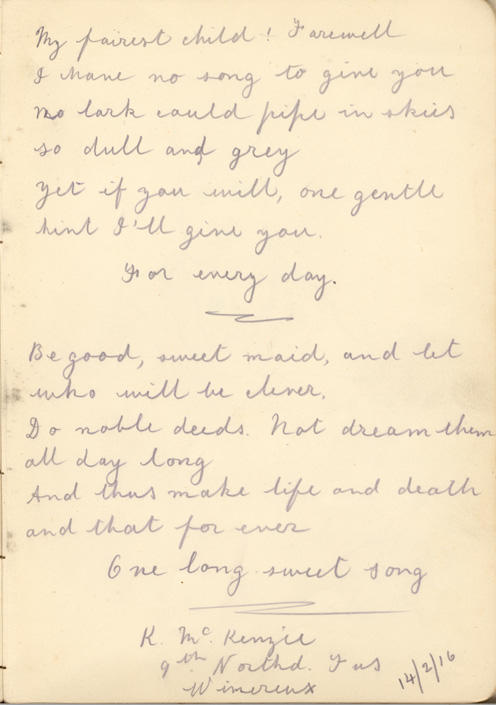 My fairest child! Farewell
I have no song to give you
no lark could pipe in skies
so dull and grey
Yet if you will, one gentle
hint I'll give you.
For every day.
Be good, sweet maid, and let
who will be clever.
Do noble deeds. Not dream them
all day long
And thus make life and death
and that for ever
One long sweet song
K. McKenzie
9th Northd. Fus
Wimereux
14/2/16